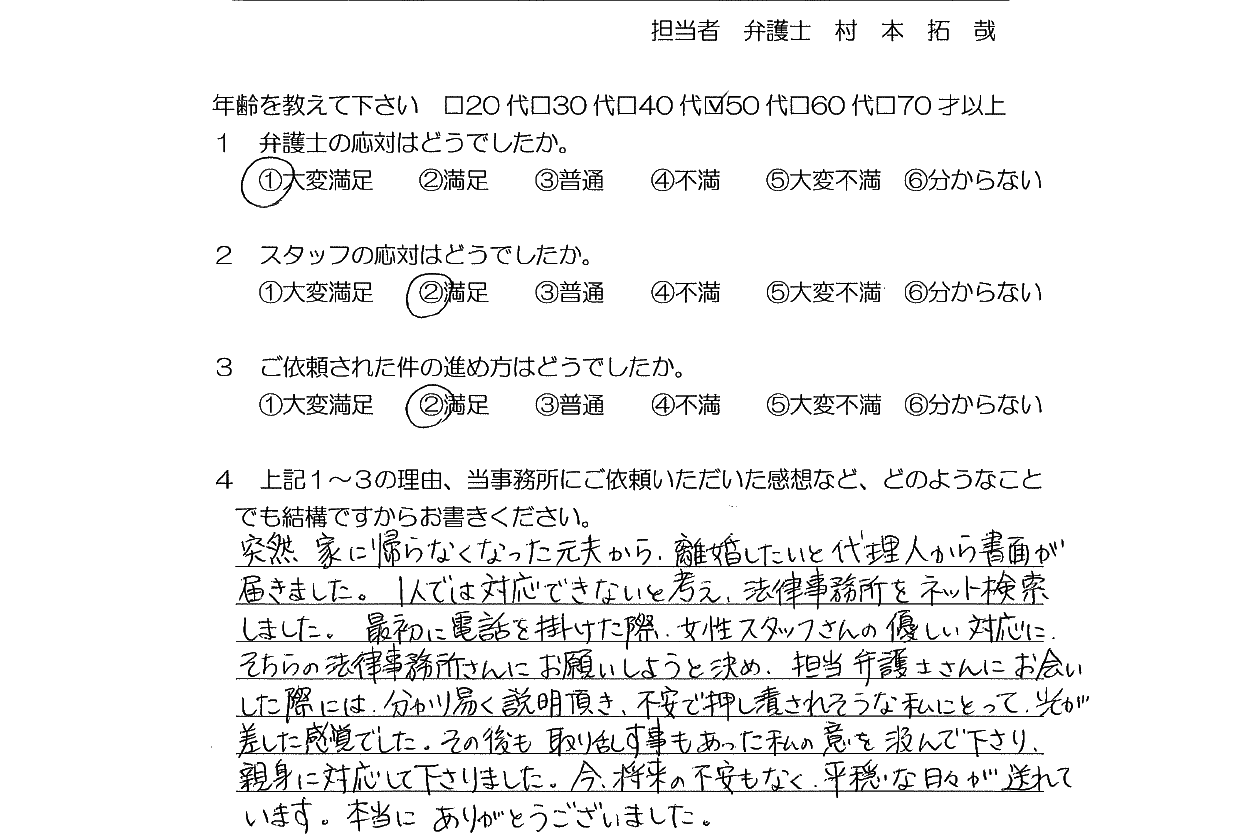 担当者　弁護士　村　本　拓　哉
年齢を教えて下さい　□20代□30代□40代☑50代□60代□70才以上
1　弁護士の応対はどうでしたか。
①大変満足　②満足　③普通　④不満　⑤大変不満　⑥分からない
2　スタッフの応対はどうでしたか。
①大変満足　②満足　③普通　④不満　⑤大変不満　⑥分からない
3　ご依頼された件の進め方はどうでしたか。
①大変満足　②満足　③普通　④不満　⑤大変不満　⑥分からない
4　上記1～3の理由、当事務所にご依頼いただいた感想など、どのようなこと
でも結構ですからお書きください。
突然 家に帰らなくなった元夫から、離婚したいと代理人から書面が
届きました。1人では対応できないと考え、法律事務所をネット検索
しました。最初に電話を掛けた際、女性スタッフさんの優しい対応に、
そちらの法律事務所さんにお願いしようと決め、担当弁護士さんにお会い
した際には、分かり易く説明頂き、不安で押し潰されそうな私にとって、光が
差した感覚でした。その後も取り乱す事もあった私の意を汲んで下さり、
親身に対応して下さりました。今、将来の不安もなく、平穏な日々が送れて
います。本当にありがとうございました。